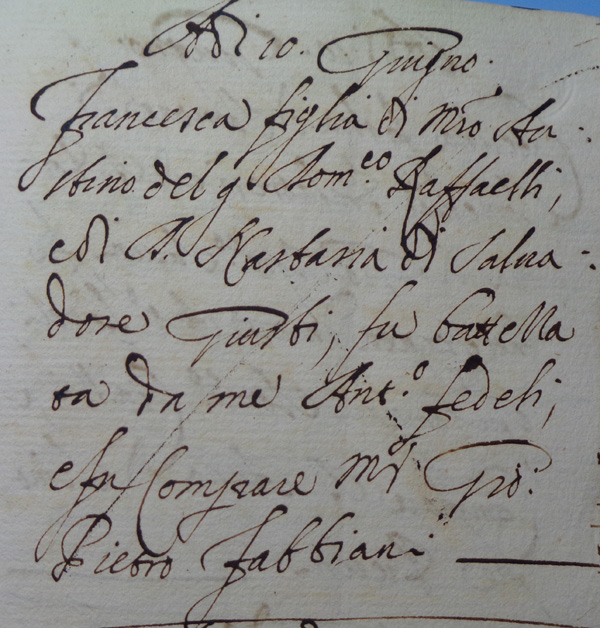 Adi 10. Giugno.
Francesca figlia di Mro Au-
stino del q Dom.co Raffaelli,
e di D. Nastasia di Salva-
dore Giusti, fu battezza
ta da me Ant.o fedeli,
e fu Compare Mr Gio:
Pietro Fabbiani